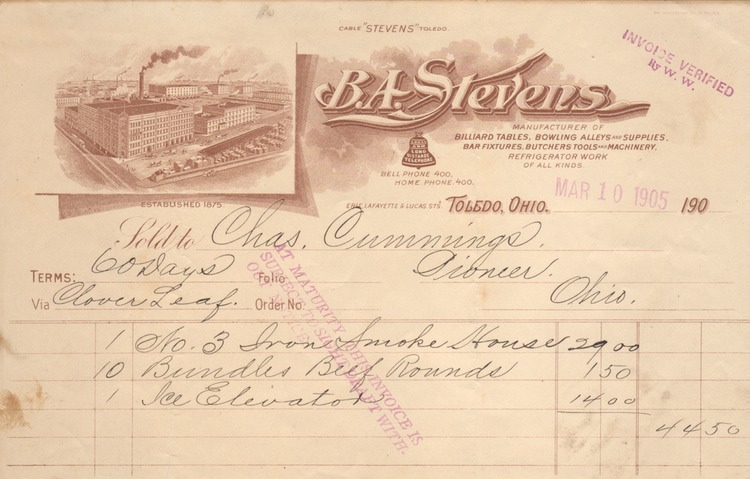 CABLE "STEVENS" TOLEDO.
INVOICE VERIFIED
By W. W.
B.A. Stevens
MANUFACTURER OF
BILLIARD TABLES, BOWLING ALLEYS AND SUPPLIES,
BAR FIXTURES, BUTCHERS TOOLS AND MACHINERY,
REFRIGERATOR WORK
OF ALL KINDS.
LONG
DISTANCE
TELEPHONE
BELL PHONE 400,
HOME PHONE 400,
ESTABLISHED 1875
ERIE, LAFAYETTE & LUCAS STS. TOLEDO, OHIO. MAR 10 1905 190
Sold to Chas. Cummings.
TERMS: 60 Days Folio Pioneer.
Via Clover Leaf. Order No. Ohio.
1 No. 3 Iron Smoke House 29 00
10 Bundles Beef Rounds 1 50
1 Ice Elevator 14 00
44 50
AT MATURITY THIS INVOICE IS